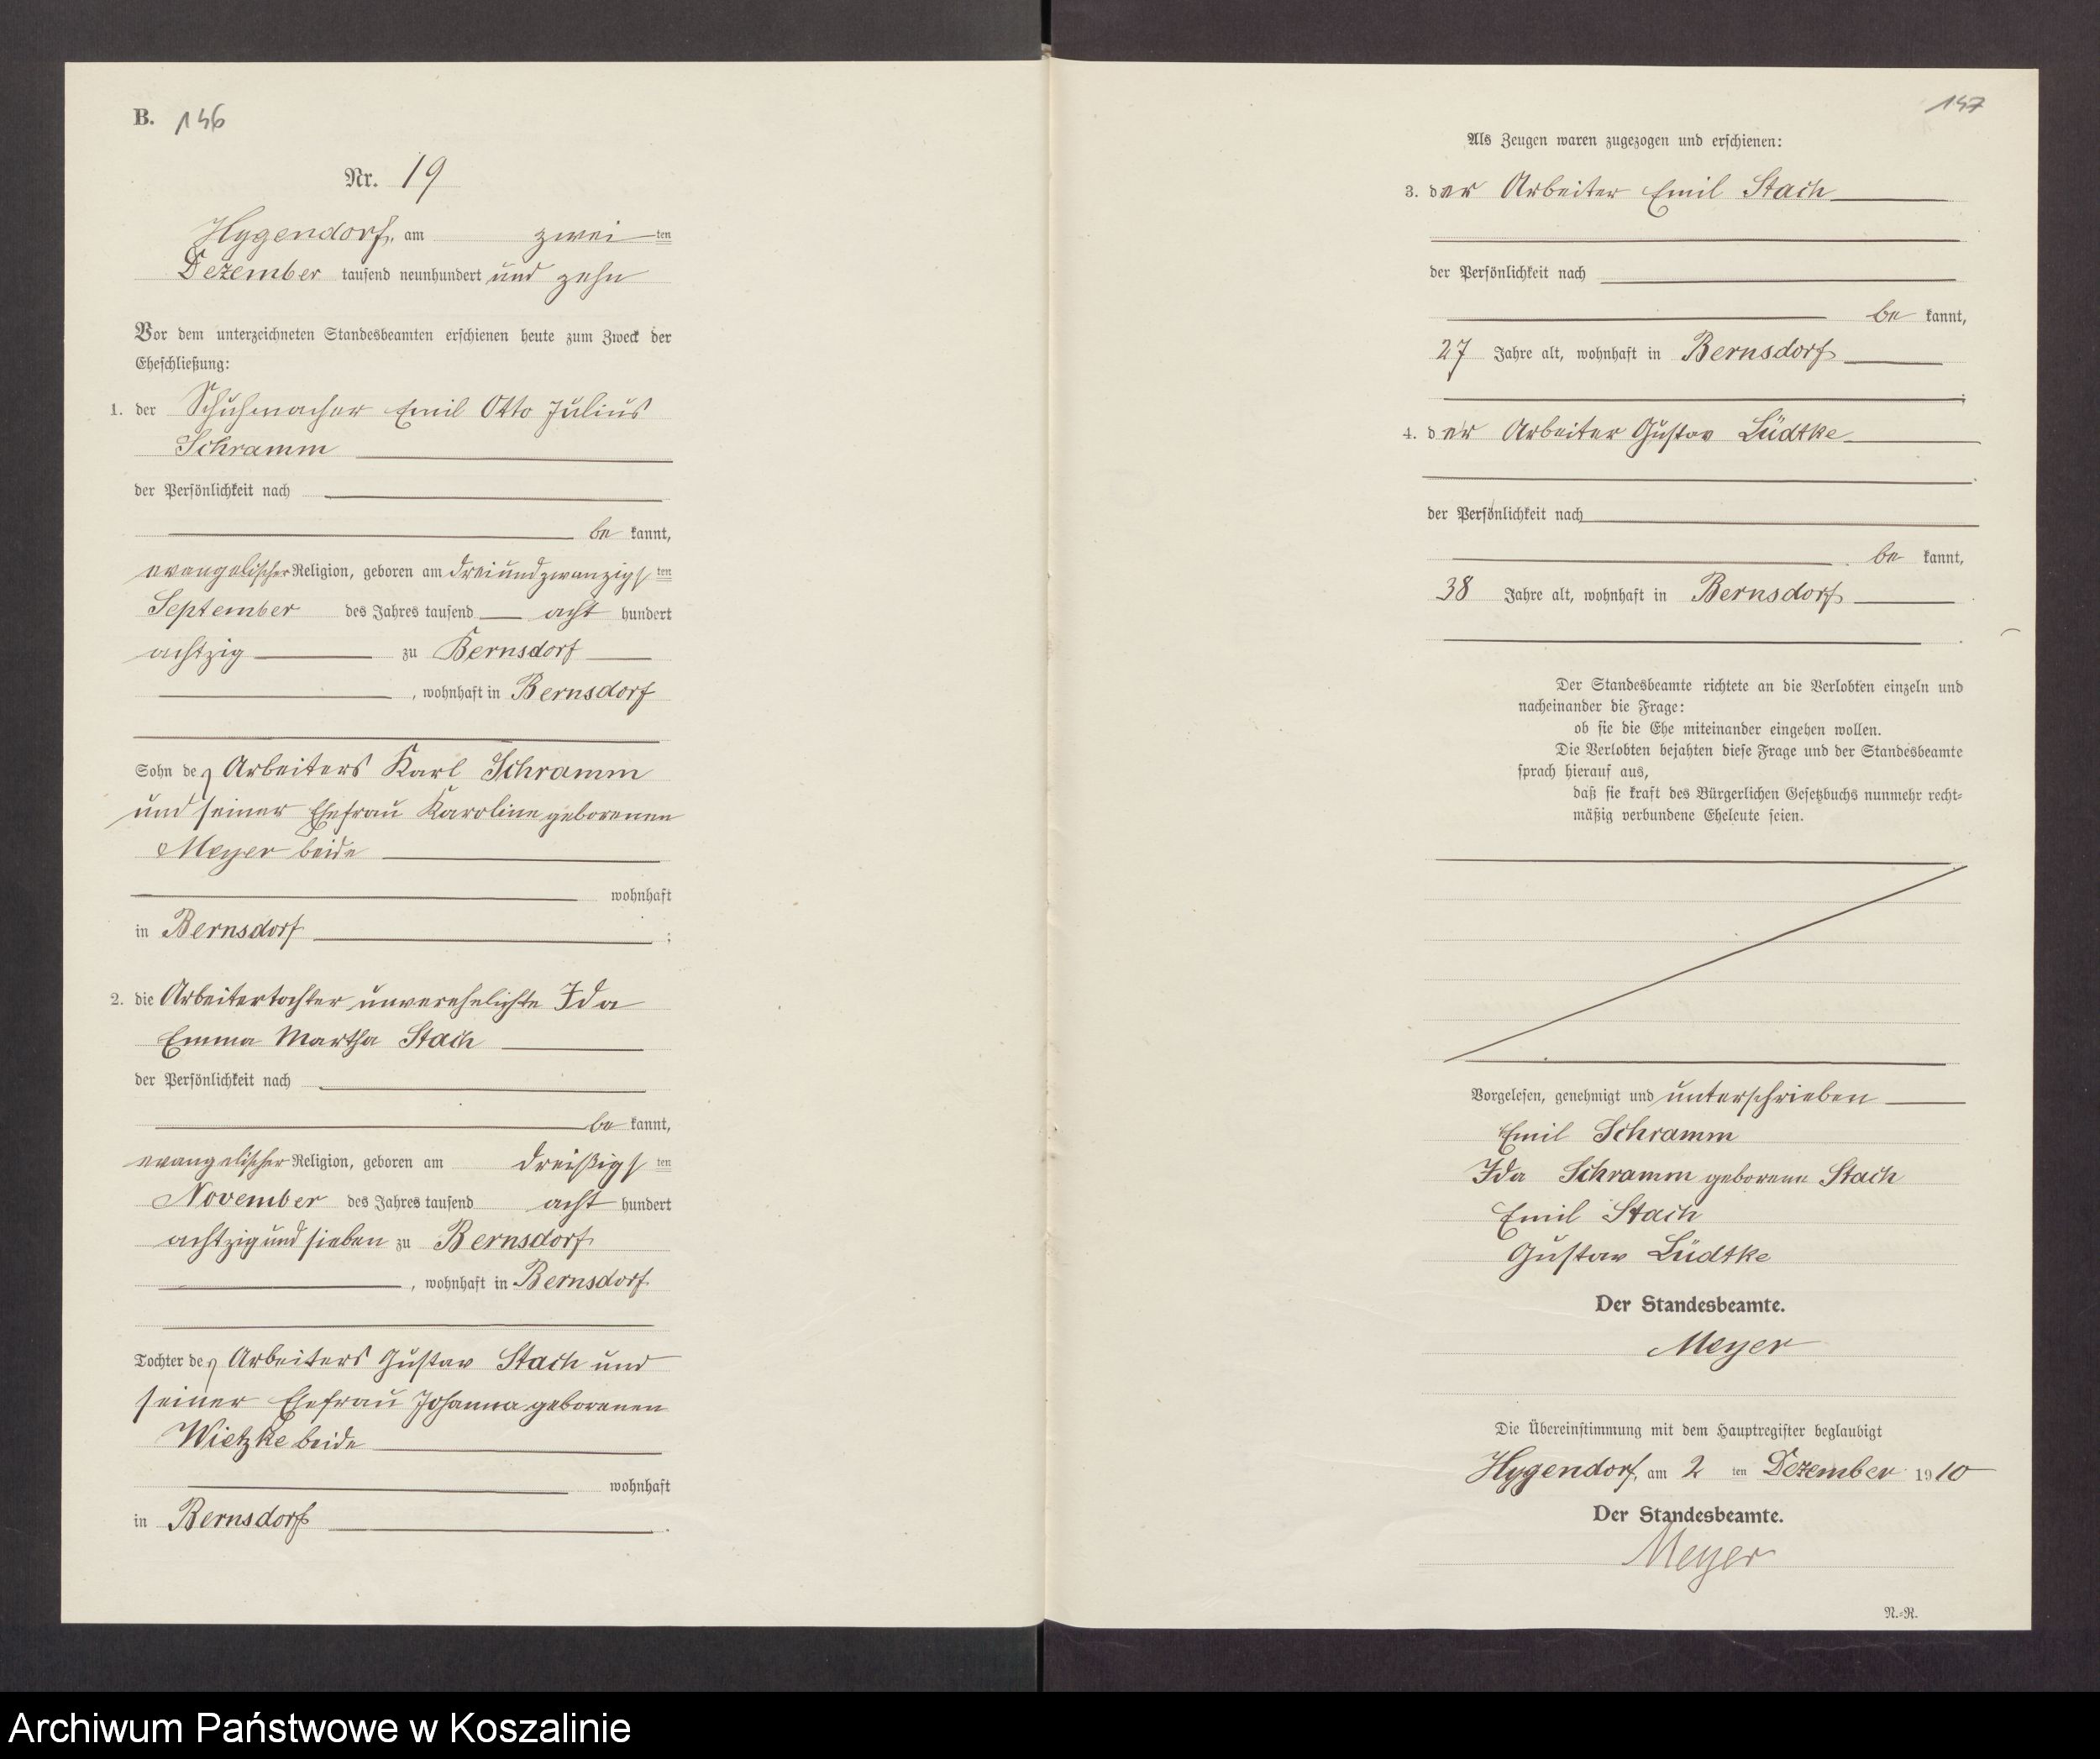 B. 146
Nr. 19
Hygendorf, am zwei ten
Dezember tausend neunhundert und zehn
Vor dem unterzeichneten Standesbeamten erschienen heute zum Zweck der
Eheschließung:
1. der Schuhmacher Emil Otto Julius
Schramm
der Persönlichkeit nach
be kannt,
evangelischer Religion, geboren am dreiundzwanzigs ten
September des Jahres tausend acht hundert
achtzig zu Bernsdorf
, wohnhaft in Bernsdorf
Sohn des Arbeiters Karl Schramm
und seiner Ehefrau Karoline geborenen
Meyer beide
wohnhaft
in Bernsdorf ;
2. die Arbeitertochter unverehelichte Ida
Emma Martha Stach
der Persönlichkeit nach
be kannt,
evangelischer Religion, geboren am dreißigs ten
November des Jahres tausend acht hundert
achtzig und sieben zu Bernsdorf
, wohnhaft in Bernsdorf
Tochter des Arbeiters Gustav Stach und
seiner Ehefrau Johanna geborenen
Wietzke beide
wohnhaft
in Bernsdorf .
147
Als Zeugen waren zugezogen und erschienen:
3. der Arbeiter Emil Stach
der Persönlichkeit nach
be kannt,
27 Jahre alt, wohnhaft in Bernsdorf
;
4. der Arbeiter Gustav Lüdtke
der Persönlichkeit nach
be kannt,
38 Jahre alt, wohnhaft in Bernsdorf
.
Der Standesbeamte richtete an die Verlobten einzeln und
nacheinander die Frage:
ob sie die Ehe miteinander eingehen wollen.
Die Verlobten bejahten diese Frage und der Standesbeamte
sprach hierauf aus,
daß sie kraft des Bürgerlichen Gesetzbuchs nunmehr recht-
mäßig verbundene Eheleute seien.
Vorgelesen, genehmigt und unterschrieben
Emil Schramm
Ida Schramm geborene Stach
Emil Stach
Gustav Lüdtke
Der Standesbeamte.
Meyer
Die Übereinstimmung mit dem Hauptregister beglaubigt
Hygendorf, am 2 ten Dezember 1910
Der Standesbeamte.
Meyer
N.-R.
Archiwum Państwowe w Koszalinie